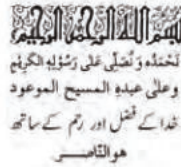 بسم الله الرحمن الرحيم
نحمده و نصلی علی رسوله الکریم
وعلی عبده المسیح الموعود
خدا کے فضل اور رحم کے ساتھ
هو الناصر